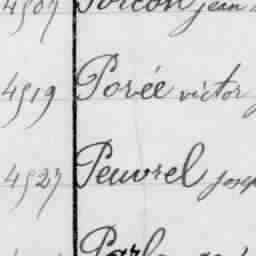 4507 Porcon jean
4519 Porée victor
4527 Peuvrel josep